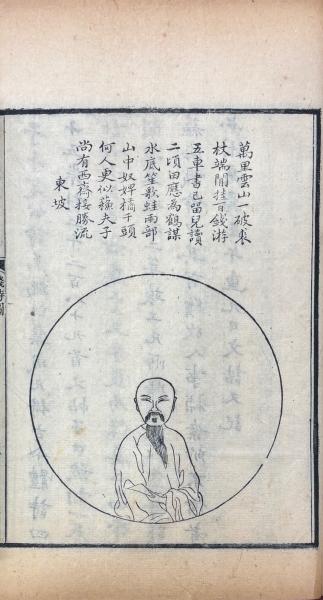 萬里雲山一破裘
杖端閒挂百錢游
五車書已留兒讀
二頃田應為鶴謀
水底笙歌蛙兩部
山中奴婢橘千頭
何人更似蘓夫子
尚有西齋接勝流
東坡